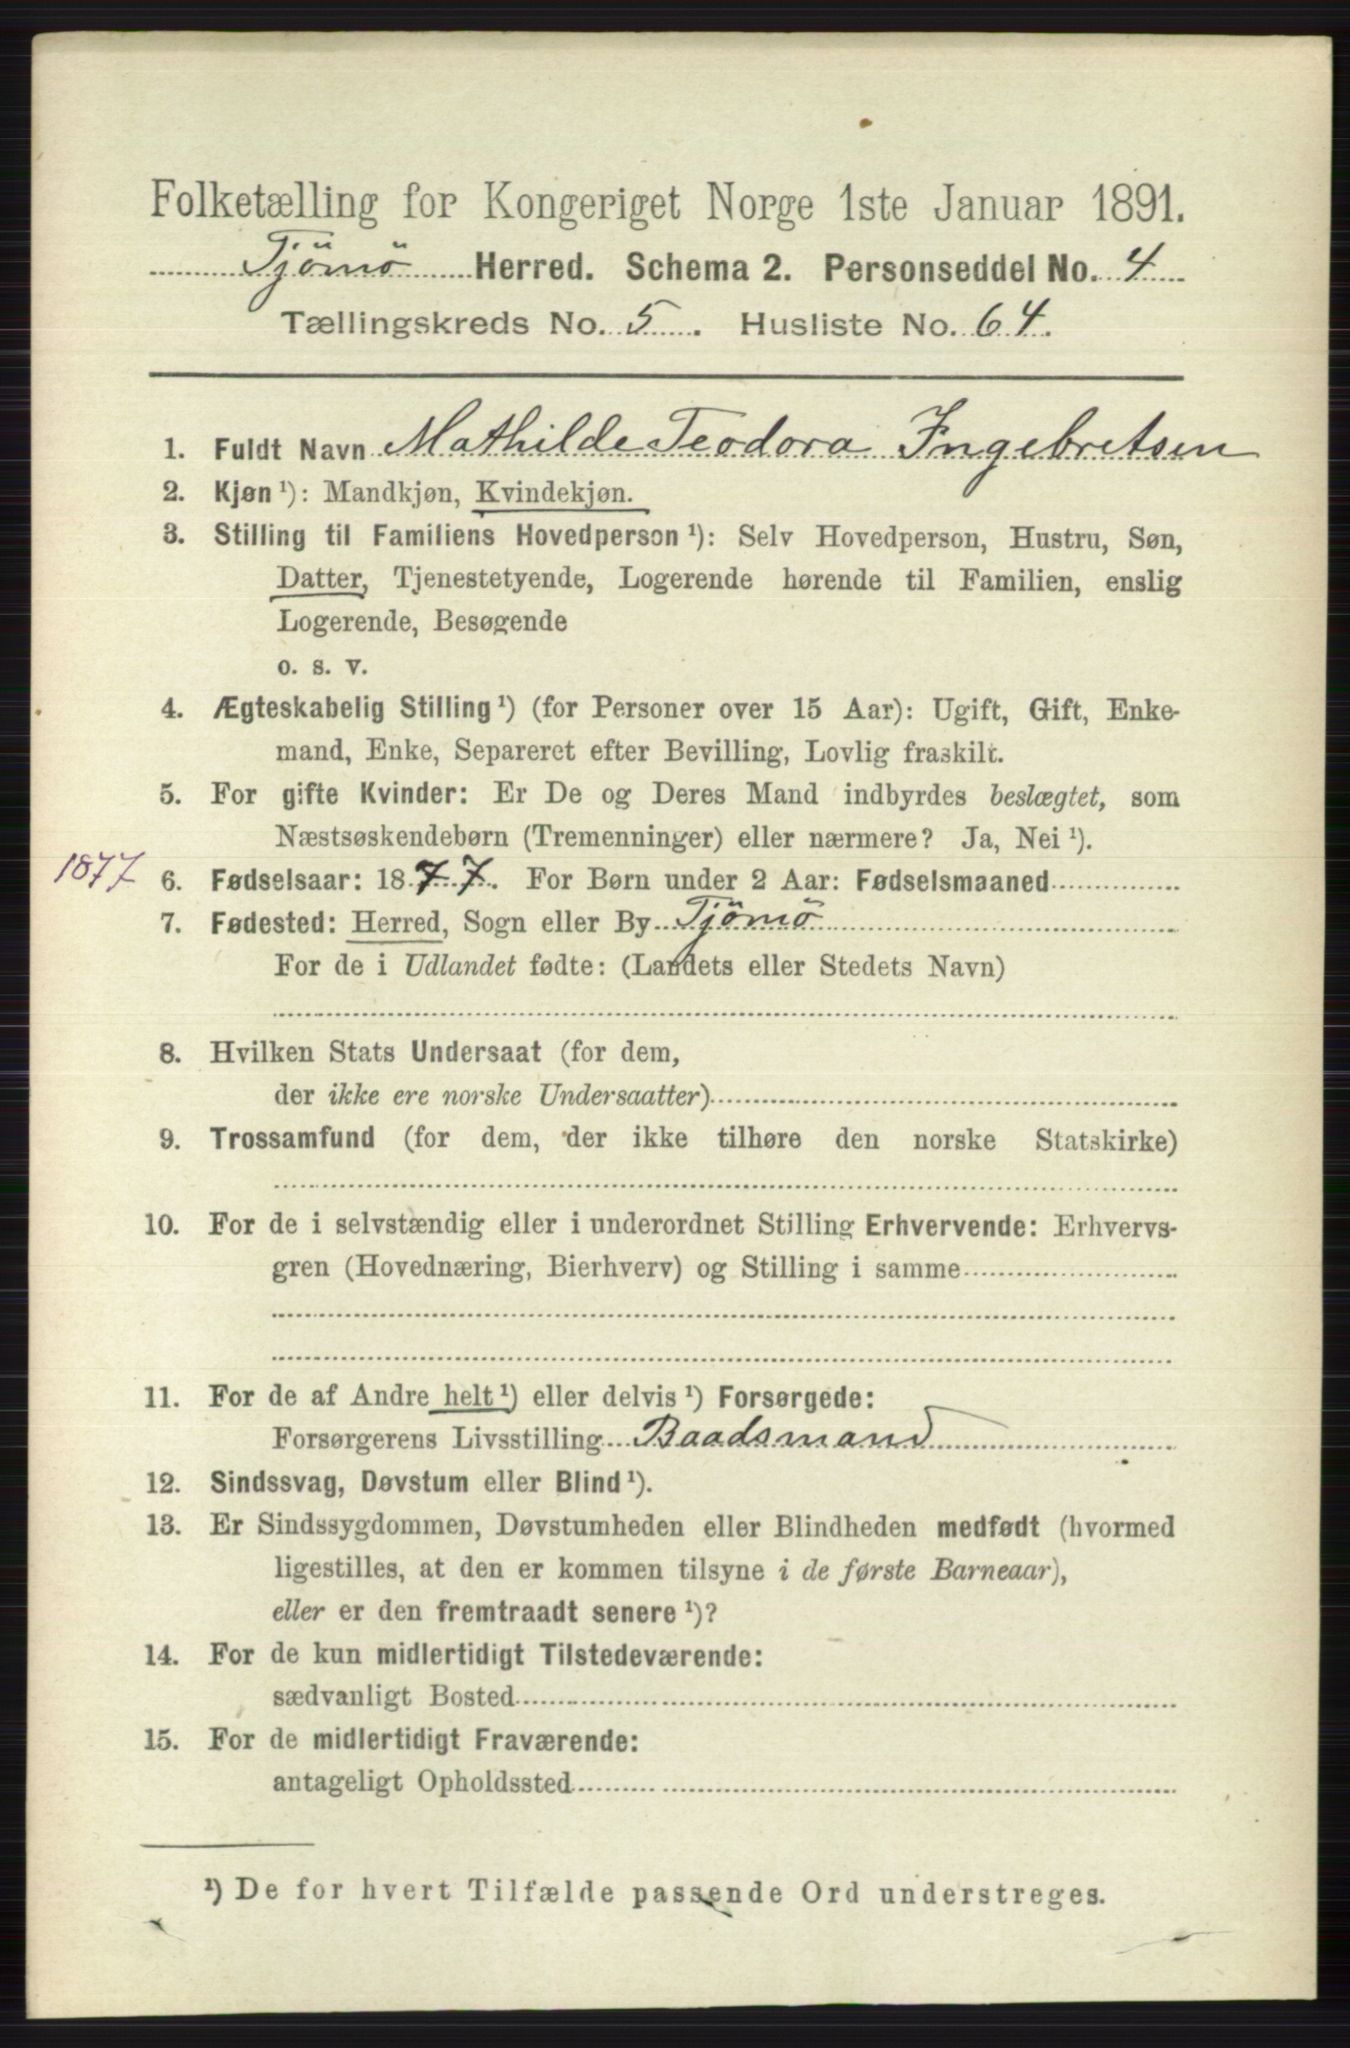 Folketælling for Kongeriget Norge 1ste Januar 1891.
Tjömö Herred. Schema 2. Personseddel No. 4
Tællingskreds No. 5. Husliste No. 64.
1. Fuldt Navn Mathilde Teodora Ingebretsen
2. Kjøn ¹): Mandkjøn, Kvindekjøn.
3. Stilling til Familiens Hovedperson ¹): Selv Hovedperson, Hustru, Søn,
Datter, Tjenestetyende, Logerende hørende til Familien, enslig
Logerende, Besøgende
o. s. v.
4. Ægteskabelig Stilling ¹) (for Personer over 15 Aar): Ugift, Gift, Enke-
mand, Enke, Separeret efter Bevilling, Lovlig fraskilt.
5. For gifte Kvinder: Er De og Deres Mand indbyrdes beslægtet, som
Næstsøskendebørn (Tremenninger) eller nærmere? Ja, Nei ¹).
1877
6. Fødselsaar: 1877. For Børn under 2 Aar: Fødselsmaaned
7. Fødested: Herred, Sogn eller By Tjömö
For de i Udlandet fødte: (Landets eller Stedets Navn)
8. Hvilken Stats Undersaat (for dem,
der ikke ere norske Undersaatter)
9. Trossamfund (for dem, der ikke tilhøre den norske Statskirke)
10. For de i selvstændig eller i underordnet Stilling Erhvervende: Erhvervs-
gren (Hovednæring, Bierhverv) og Stilling i samme
11. For de af Andre helt ¹) eller delvis ¹) Forsørgede:
Forsørgerens Livsstilling Baadsmand
12. Sindssvag, Døvstum eller Blind ¹).
13. Er Sindssygdommen, Døvstumheden eller Blindheden medfødt (hvormed
ligestilles, at den er kommen tilsyne i de første Barneaar),
eller er den fremtraadt senere ¹)?
14. For de kun midlertidigt Tilstedeværende:
sædvanligt Bosted
15. For de midlertidigt Fraværende:
antageligt Opholdssted
¹) De for hvert Tilfælde passende Ord understreges.